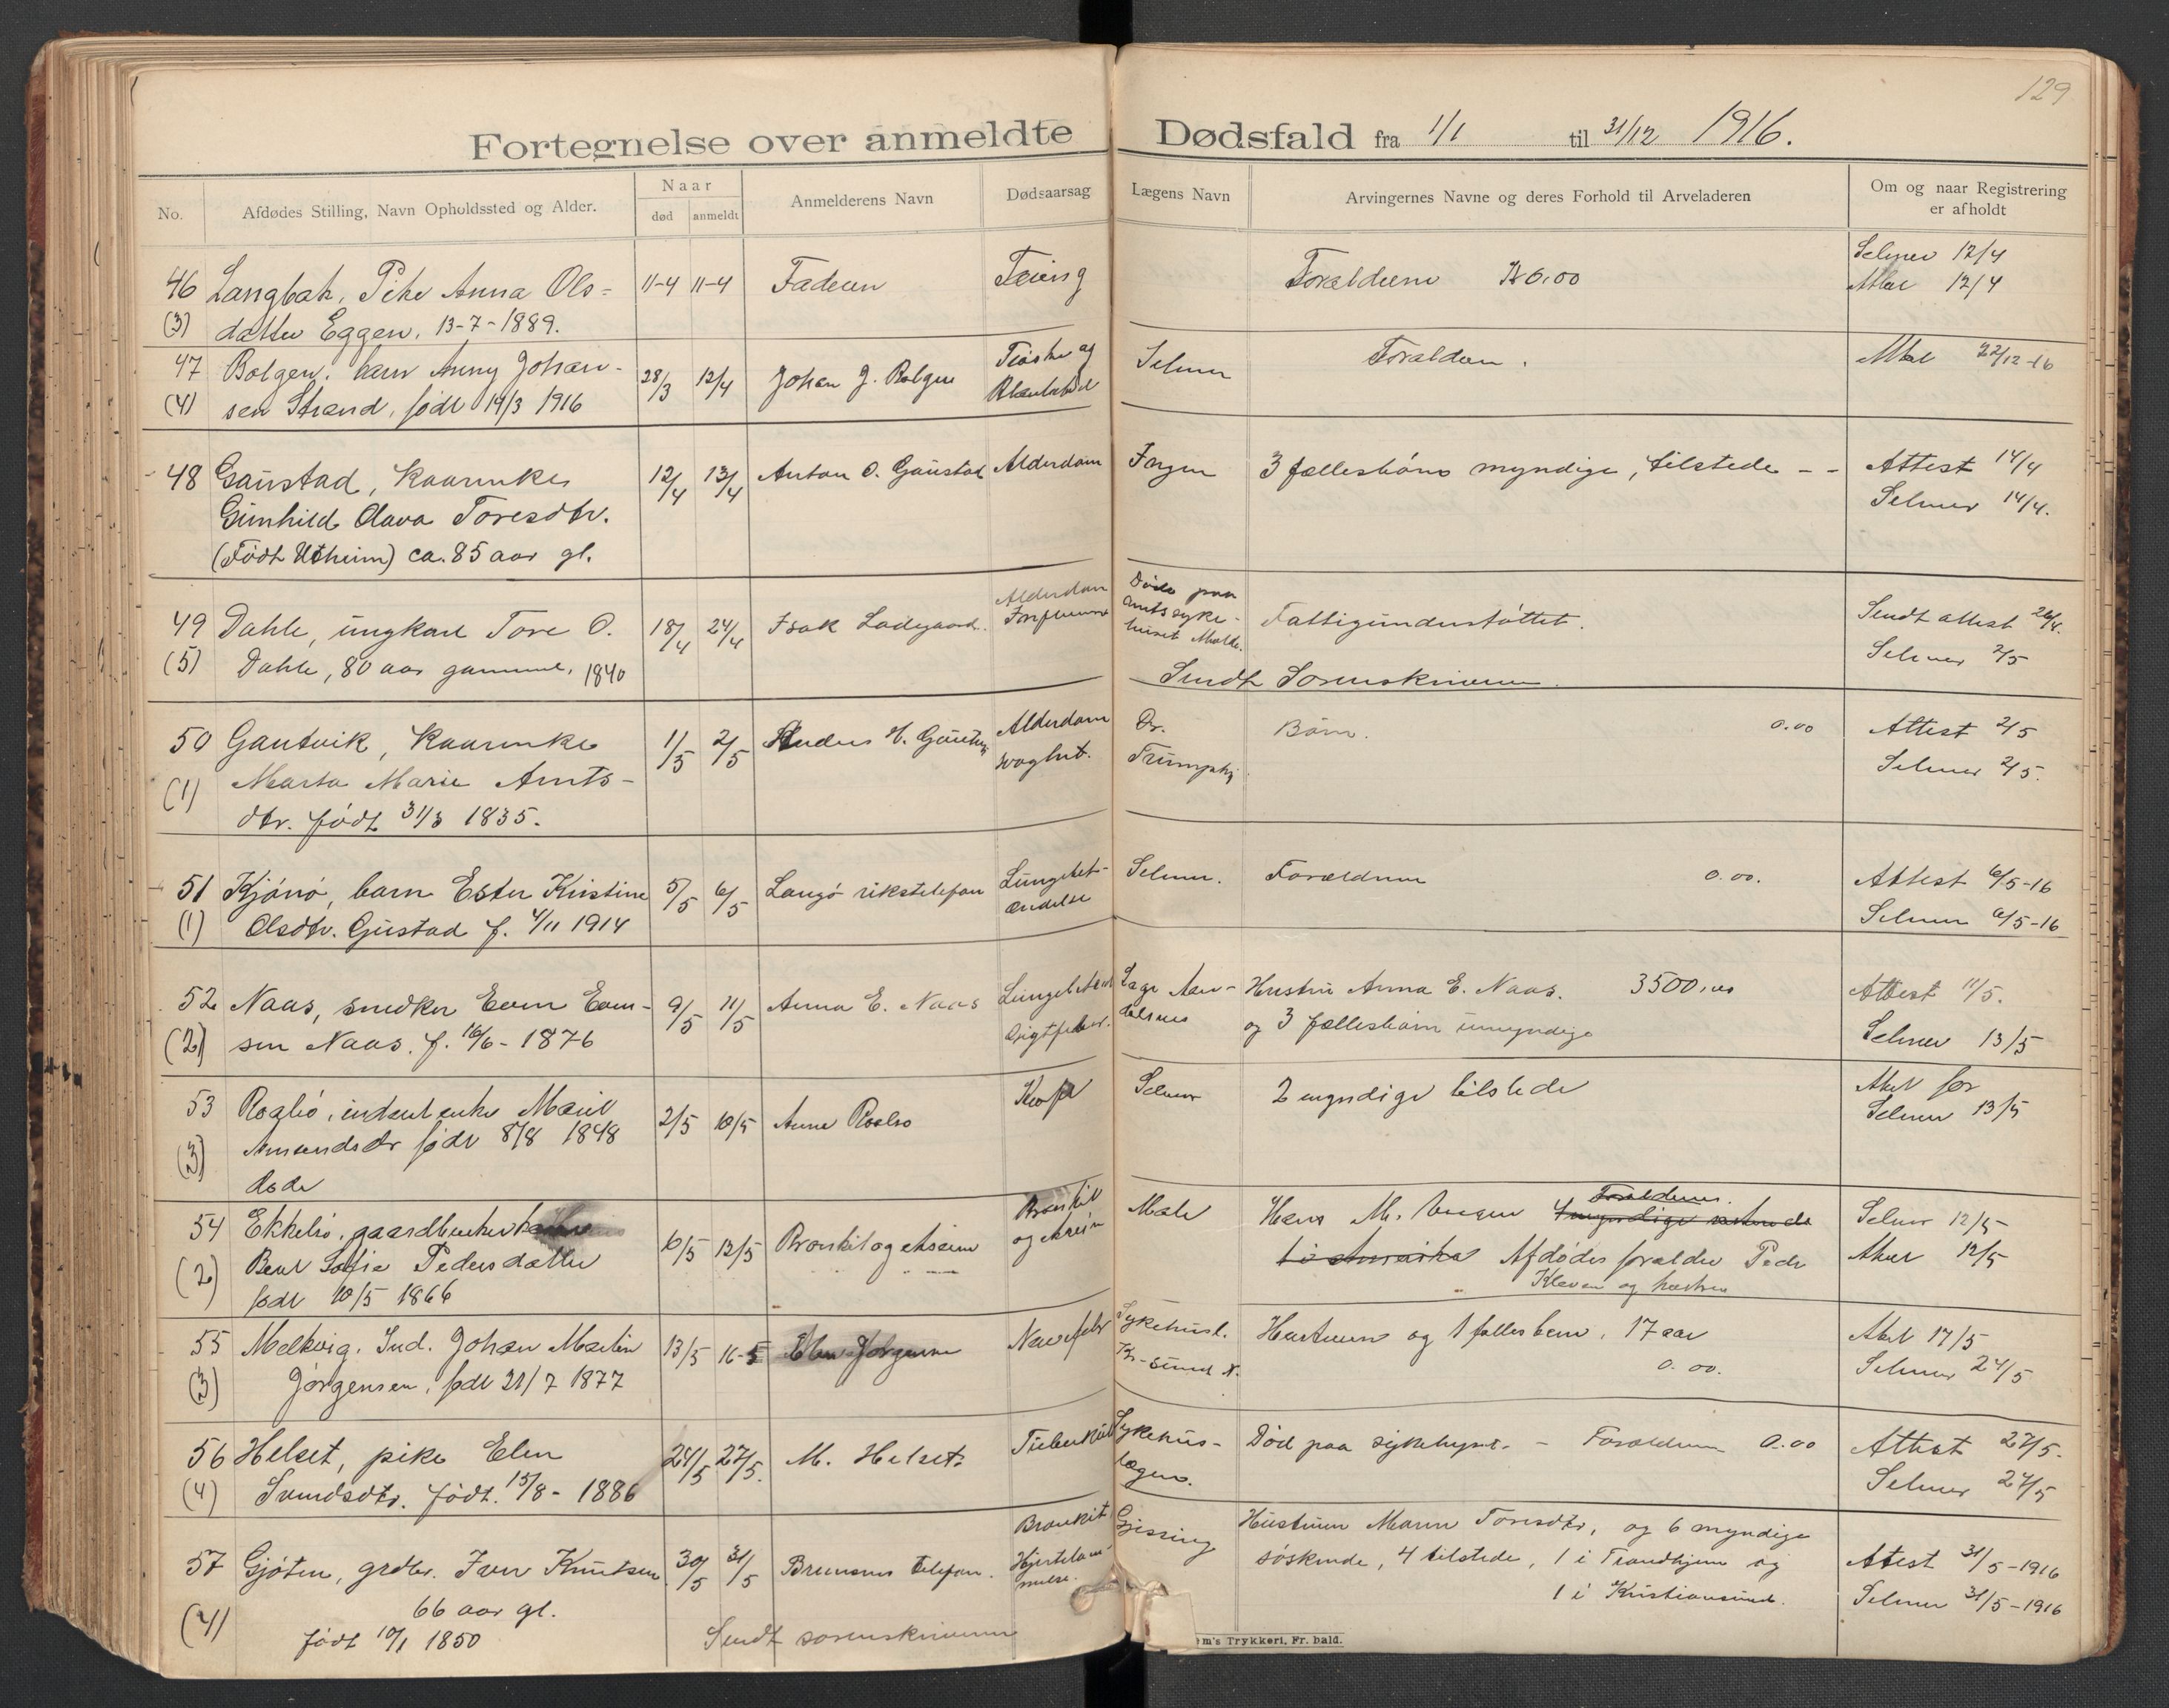 129
Fortegnelse over anmeldte Dødsfald fra 1/1 til 31/12 1916.
No.
Afdødes Stilling, Navn Opholdssted og Alder.
Naar
død
anmeldt
Anmelderens Navn
Dødsaarsag
Lægens Navn
Arvingernes Navne og deres Forhold til Arveladeren
Om og naar Registrering
er afholdt
46 Langbak, Pike Anna Ols- 11-4 11-4 Faderen Tæring Forældrene Selmer 12/4
(3) datter Eggen, 13-7-1889. 12/4
47 Bolgen, barn Anny Johan- 28/3 12/4 Johan J. Bolgen Selmer Forældren. 22/12-16
(4) sen Strand, født 19/3 1916
48 Gaustad, Kaarenke 12/4 13/4 Anton O. Gaustad Alderdom 3 fællesbørn myndige, tilstede -- Attest 14/4
Gunhild Olava Toresdtr. Selmer 14/4.
(Født Utheim) ca. 85 aar gl.
49 Dahle, ungkarl Tore O. 18/4 24/4 Isak Ladegaard. Alderdom Døde paa
amtssyke-
huset Molde. Fattigunderstøttet. Sendt attest 26/4.
(5) Dahle, 80 aar gammel, 1840 Selmer 2/5
Sendt Sorenskriveren.
50 Gautvik, Kaarenke 1/5 2/5 Anders H. Gautvik Alderdom Dr. Børn. 0.00 Attest 2/5
(1) Marta Marie Arnts- svaghet. Selmer 2/5.
dtr. født 31/3 1835.
51 Kjönö, barn Ester Kristine 5/5 6/5 Langö rikstelefon Lungebet- Selmer. Forældrene 0.00. Attest 6/5-16
(1) Olsdtr. Gustad f. 4/11 1914 ændelse Selmer 6/5-16
52 Naas, snedker Even Even- 9/5 11/5 Anna E. Naas Hustru Anna E. Naas. 3500,00 Attest 11/5.
(2) sen Naas. f. 16/6-1876 Gigtfeber. og 3 fællesbørn umyndige Selmer 13/5
53 Marit 2/5 10/5 Anne Selmer 2 myndige tilstede for
(3) Amundsdtr født 8/8 1848 Selmer 13/5
54 Ekkelsö, 10/5 12/5 Bronkit og Forældrene. Selmer 12/5
(2) Berit Sofie Pedersdatter Afdødes forældre Peder 12/5
født 10/5 1866 Kleven og hustru
55 Melkvig. Ind. Johan Martin 13/5 16-5 Jørgensen Sykehusl. Hustruen og 1 fællesbarn, 17 aar 17/5
(3) Jørgensen, født 21/7 1877 Kr-sund N. 0.00. Selmer 24/5
56 Helset, pike Elen 24/5 27/5. M. Helset Tuberkul Sykehus- Død paa sykehuset. - Forældrene 0.00 Attest 27/5.
(4) Svendsdtr. født. 15/8-1886 lægen. Selmer 27/5
57 Gjöten, grdbr. Iver Knutsen 30/5 31/5 Bremsnes telefon. Bronkit, Gjessing Hustruen Maren Toresdtr, og 6 myndige
Hjertelam-
melse. søskende, 4 tilstede, 1 i Trondhjem og Attest 31/5-1916
66 aar gl. 1 i Kristiansund. Selmer 31/5-1916
(4) født 10/1 1850 Sendt sorenskriveren
m's Trykkeri, Fr. hald.